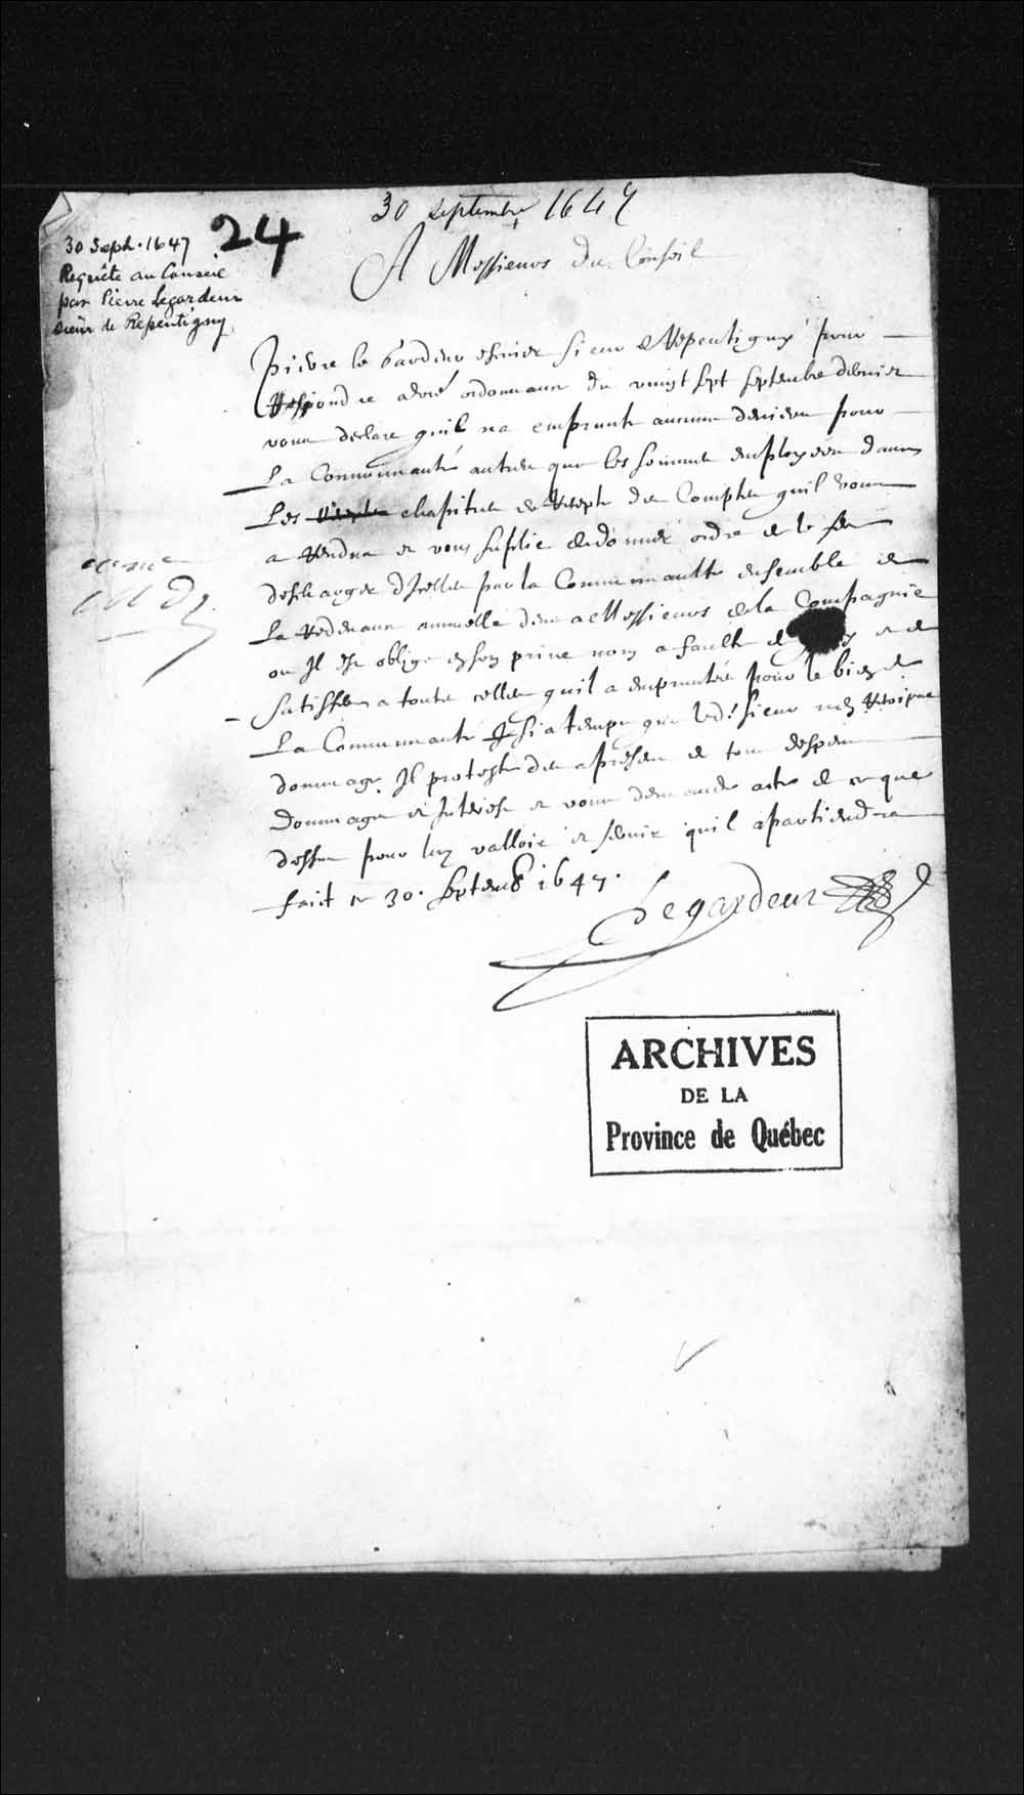 30 septembre 1647
24
30 Sept. 1647
Requête au Conseil
par Pierre Legardeur
sieur de Repentigny
A Messieurs du Conseil
Pierre le Gardeur escuier sieur de Repentigny pour
Respondre a vre ordonnance du vingt sept septembre dernier
vous declare quil na emprunte aucuns deniers pour
La Communauté autres que les sommes employées dans
Les chapitres de Recepte du Compte quil vous
a Rendu et vous suplie de donner ordre de le
descharger dIcelles par la Communaulté ensemble de
La Redevance annuelle deue a Messieurs de la Compagnie
ou Il est obligé en son privé nom a faulte de et de
satisfere a toutes celles quil a empruntées pour le bien de
La Communauté sy a temps que led. sieur nen Reçoive
dommage Il proteste des a present de tous despens
Dommages et Interest et vous demande acte de ce que
dessus pour luy valloir et servir quil apartiendra
fait ce 30. septemb 1647.
Legardeur
ARCHIVES
DE LA
Province de Québec